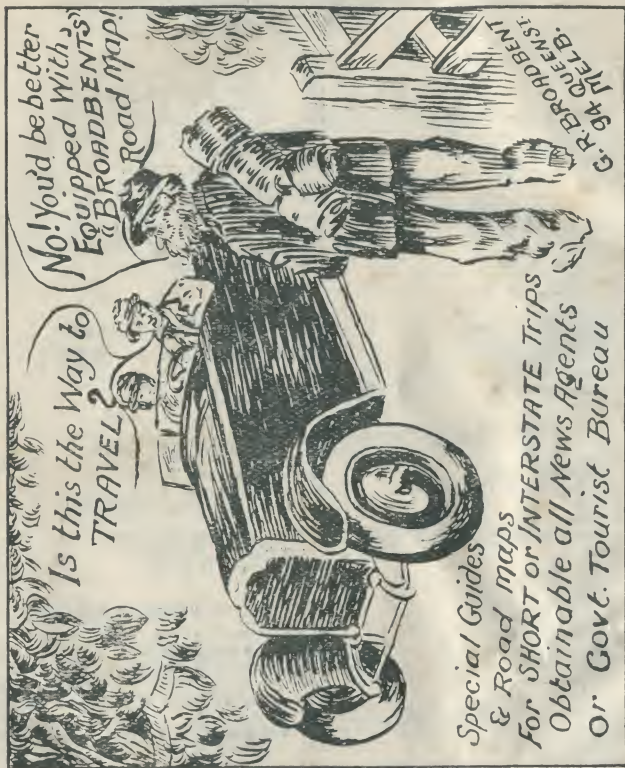 Is this the Way to
TRAVEL?
No! You'd be better
Equipped With,
"BROADBENTS"
Road Map!
Special Guides
& Road Maps
For SHORT or INTERSTATE Trips
Obtainable all News Agents
Or Govt. Tourist Bureau
G.R. BROADBENT
94 QUEEN ST.
MELB.